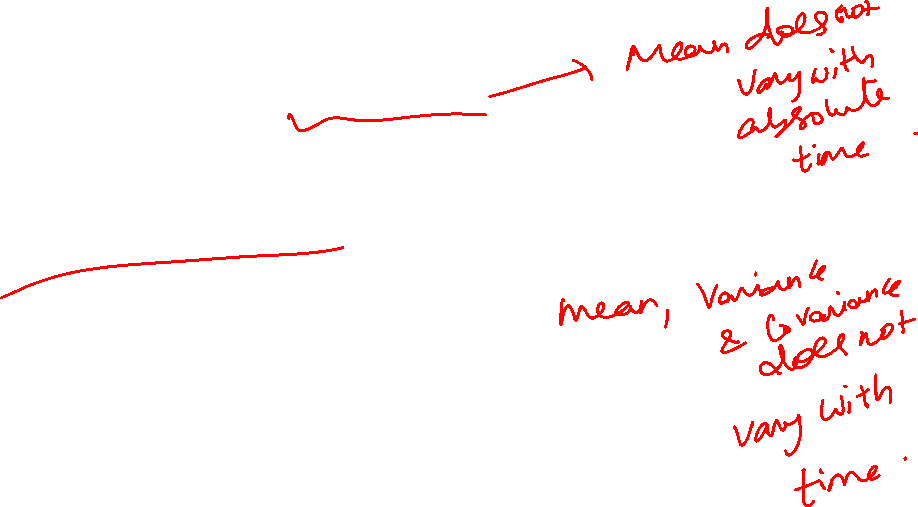 Mean does not
vary with
absolute
time.
mean, variance
& Covariance
does not
vary with
time.